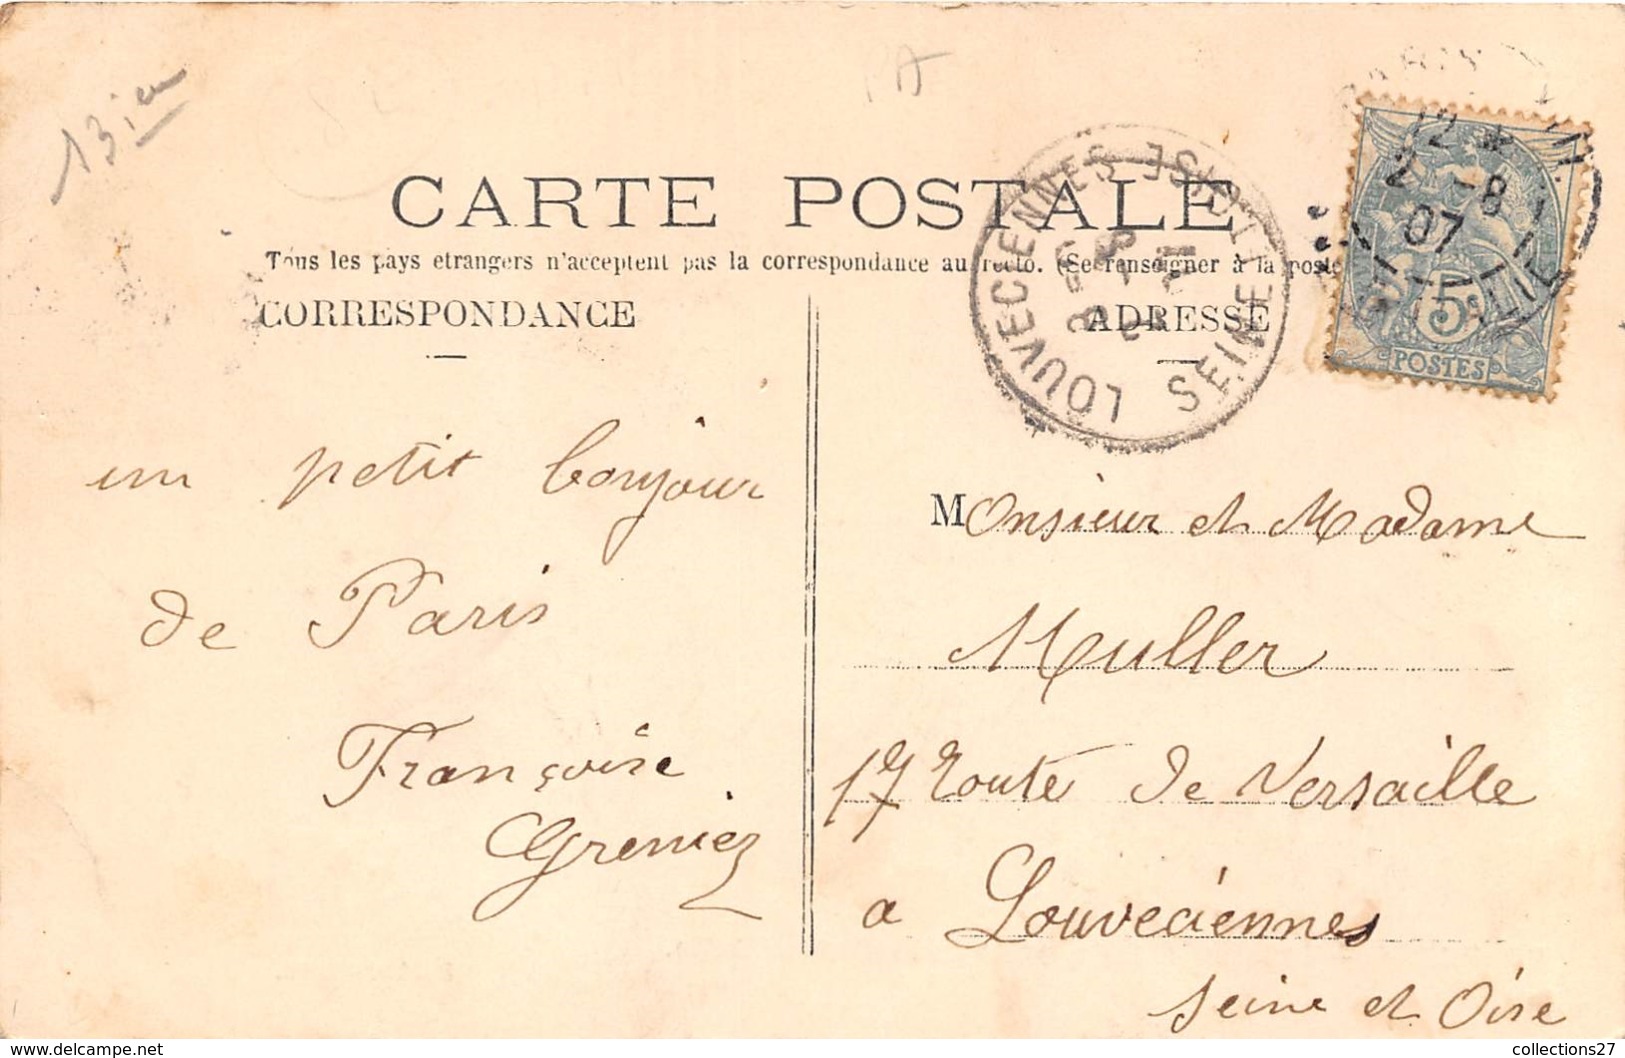 13 je
CARTE POSTALE
Tous les pays etrangers n'acceptent pas la correspondance au recto. (Se renseigner à la poste
CORRESPONDANCE
ADRESSE
LOUVECIENNES
SEINE ET OISE
12 *
2 -8
07
5
POSTES
un petit bonjour
de Paris
Françoise
Greniez
Monsieur et Madame
Muller
17 route de Versaille
a Louveciennes
Seine et Oise
collections27